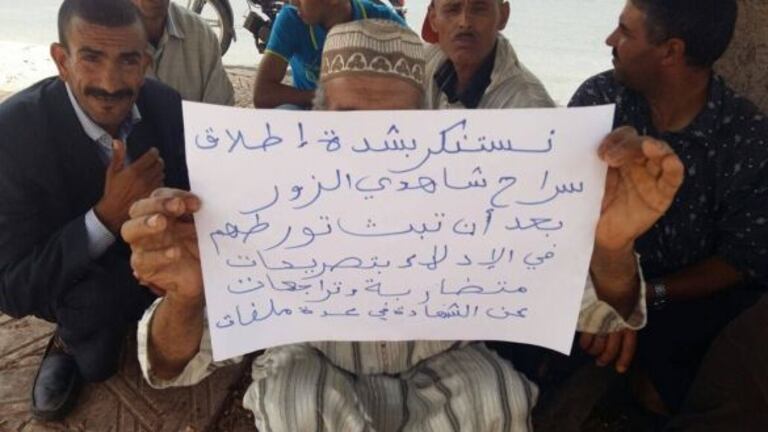 نستنكر بشدة إطلاق
سراح شاهدي الزور
بعد أن تبث تورطهم
في الإدلاء بتصريحات
متضاربة وتراجعات
عن الشهادة في عدة ملفات